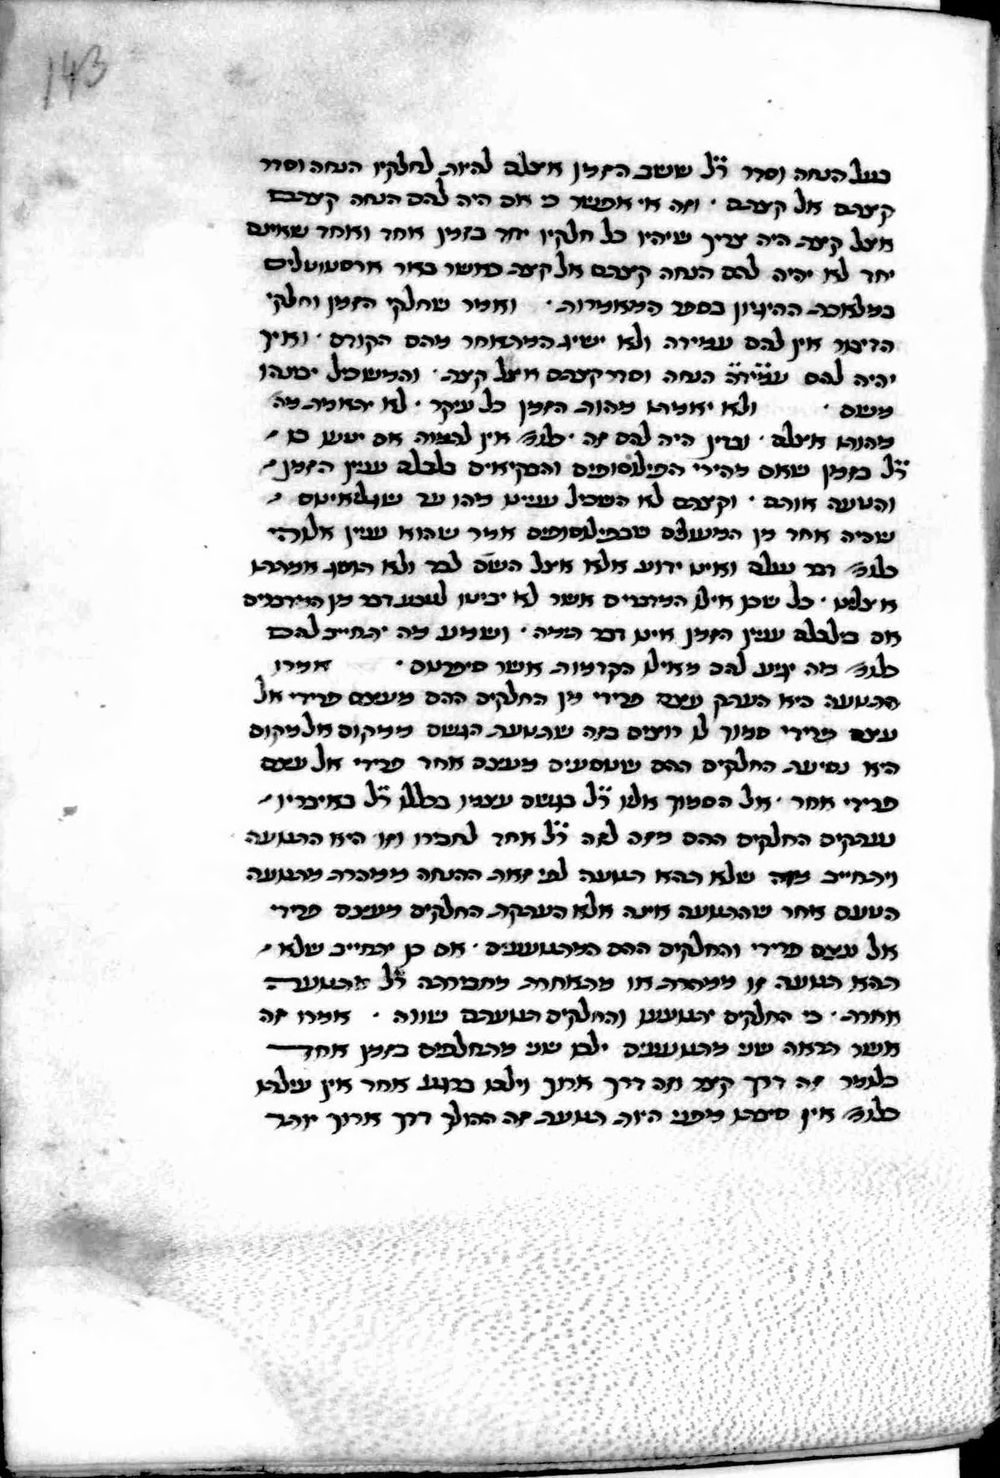 143
בעל הנחה וסדר ר״ל ששב הזמן אצלם להיות לחלקיו הנחה וסדר
קצתם אל קצתם · וזה אי אפשר כי אם היה להם הנחה קצתם
אצל קצת היה צריך שיהיו כל חלקיו יחד בזמן אחד ואחר שאינם
יחד לא יהיה להם הנחה קצתם אל קצת כאשר באר ארסטוטליס
במלאכת ההיגיון בספר המאמרות · ואמר שחלקי הזמן וחלקי
הדיבור אין להם עמידה ולא ישיג המתאחר מהם הקודם · ואיך
יהיה להם עמידה הנחה וסדר קצתם אצל קצת · והמשכיל יבינהו
משם · ולא יאמתו מהות הזמן כל עיקר · לא יתאמת מה
מהותו אצלם · ובדין היה להם זה · כלומ׳ אין לתמוה אם יטעו בו
ר״ל בזמן שאם מהירי הפילוסופים והבקיאים בלבלם עניין הזמן
והטעה אותם · וקצתם לא השכיל עניינו מהו עד שגלאינוס
שהיה אחד מן המעולים שבפילוסופים אמר שהוא עניין אלוהי
כלומ׳ דבר נעלם ואינו ידוע אלא אצל השם לבד ולא הושג אמתתו
אצלנו · כל שכן אילו המדברים אשר לא יביטו לטבע דבר מן הדברים
אם בילבלם עניין הזמן אינו דבר תמה · ושמע מה יתחייב להם
כלומ׳ מה יגיע להם מאילו הקדמות אשר סיפרנום · אמרו
התנועה היא העתק עצם פרידי מן החלקים ההם מעצם פרידי אל
עצם פרידי סמוך לו רוצים בזה שתנועת הגשם ממקום אל מקום
היא נסיעת החלקים ההם שנוסעים מעצם אחד פרידי אל עצם
פרידי אחר · אל הסמוך אליו ר״ל בגשם עצמו בכללו ר״ל באיבריו
נעתקים החלקים ההם מזה לזה ר״ל אחד לחבירו וזו היא התנועה
ויתחייב מזה שלא תהא תנועה לפי זאת ההנחה ממהרת מתנועה
הטעם אחר שהתנועה אינה אלא העתקת החלקים מעצם פרידי
אל עצם פרידי והחלקים ההם המתנועעים · אם כן יתחייב שלא
תהא תנועה זו ממהרת או מתאחרת מחבירתה ר״ל מתנועה
אחרת · כי החלקים יתנועעו והחלקים תנועתם שווה · אמרו זה
אשר תראה שני מתנועעים ילכו שני מהחלכים בזמן אחד
כלומר זה דרך קצר וזה דרך ארוך וילכו ברגע אחד אין עילתו
כלומ׳ אין סיבתו מפני היות תנועת זה ההולך דרך ארוך יותר